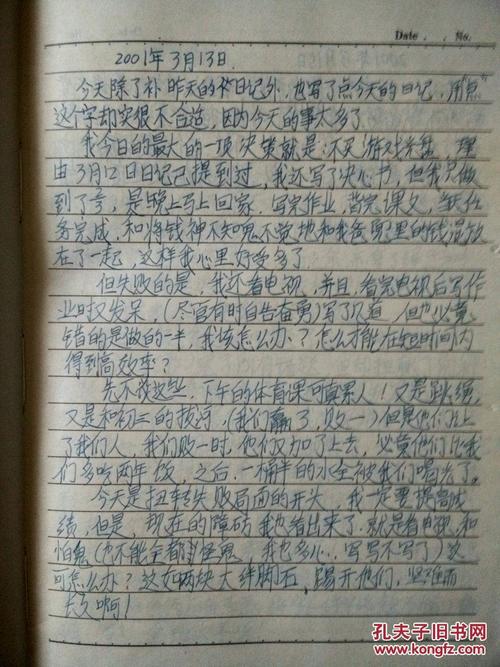 Date . . No.
2001年3月13日.
今天除了补昨天的日记外,也写了点今天的日记,用"点"
这个字却实很不合适,因为今天的事太多了.
我今日的最大的一项决策就是:不买游戏光盘,理
由3月12日日记已提到过,我还写了决心书,但我只做
到了,是晚上马上回家.写完作业,背完课文,
务完成,和将钱神不知鬼不觉地和我爸兜里的钱混放
在了一起,这样我心里好受多了.
但失败的是,我还看电视,并且,看完电视后写作
业时又发呆,(尽管有时自告奋勇)写了几道,但也必竟
错的是做的一半,我该怎么办?怎么才能在短时间内
得到高效率?
先不说这些.下午的体育课可真累人!又是跳绳,
又是和初三的拔河,(我们赢了,败一)但是他们
了我们人,我们败一时,他们又加了上去,必竟他们比我
们多吃两年饭,之后.一桶半的水全被我们喝光了.
今天是扭转失败局面的开头,我一定要提高成
绩,但是,现在的障碍我也看出来了.就是看电视,和
怕鬼(也不能全都怪鬼,我也多心..写写不写了)这
可怎么办?这如两块大绊脚石,踢开他们,
天久啊!
孔夫子旧书网
www.kongfz.com